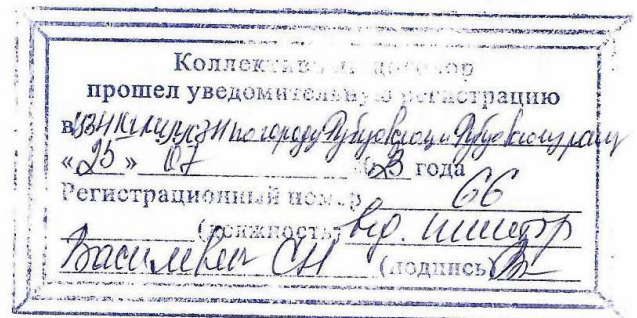 Коллективный договор
прошел уведомительную регистрацию
в УЗН по городу Рубцовску и Рубцовскому району
«25» 07 23 года
Регистрационный номер 66
(должность) вед. инспектор
Василевич СН (подпись)